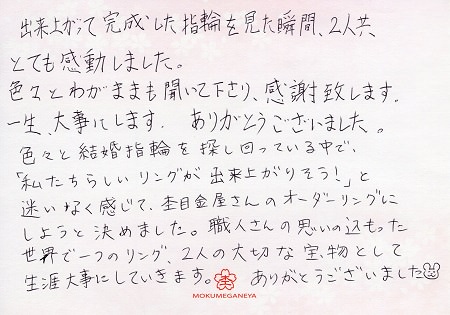 出来上がって完成した指輪を見た瞬間、2人共、
とても感動しました。
色々とわがままも聞いて下さり、感謝致します。
一生、大事にします。ありがとうございました。
色々と結婚指輪を探し回っている中で、
「私たちらしいリングが出来上がりそう!」と
迷いなく感じて、杢目金屋さんのオーダーリングに
しようと決めました。職人さんの思いの込もった
世界で一つのリング、2人の大切な宝物として
生涯大事にしていきます。 ありがとうございました
MOKUMEGANEYA